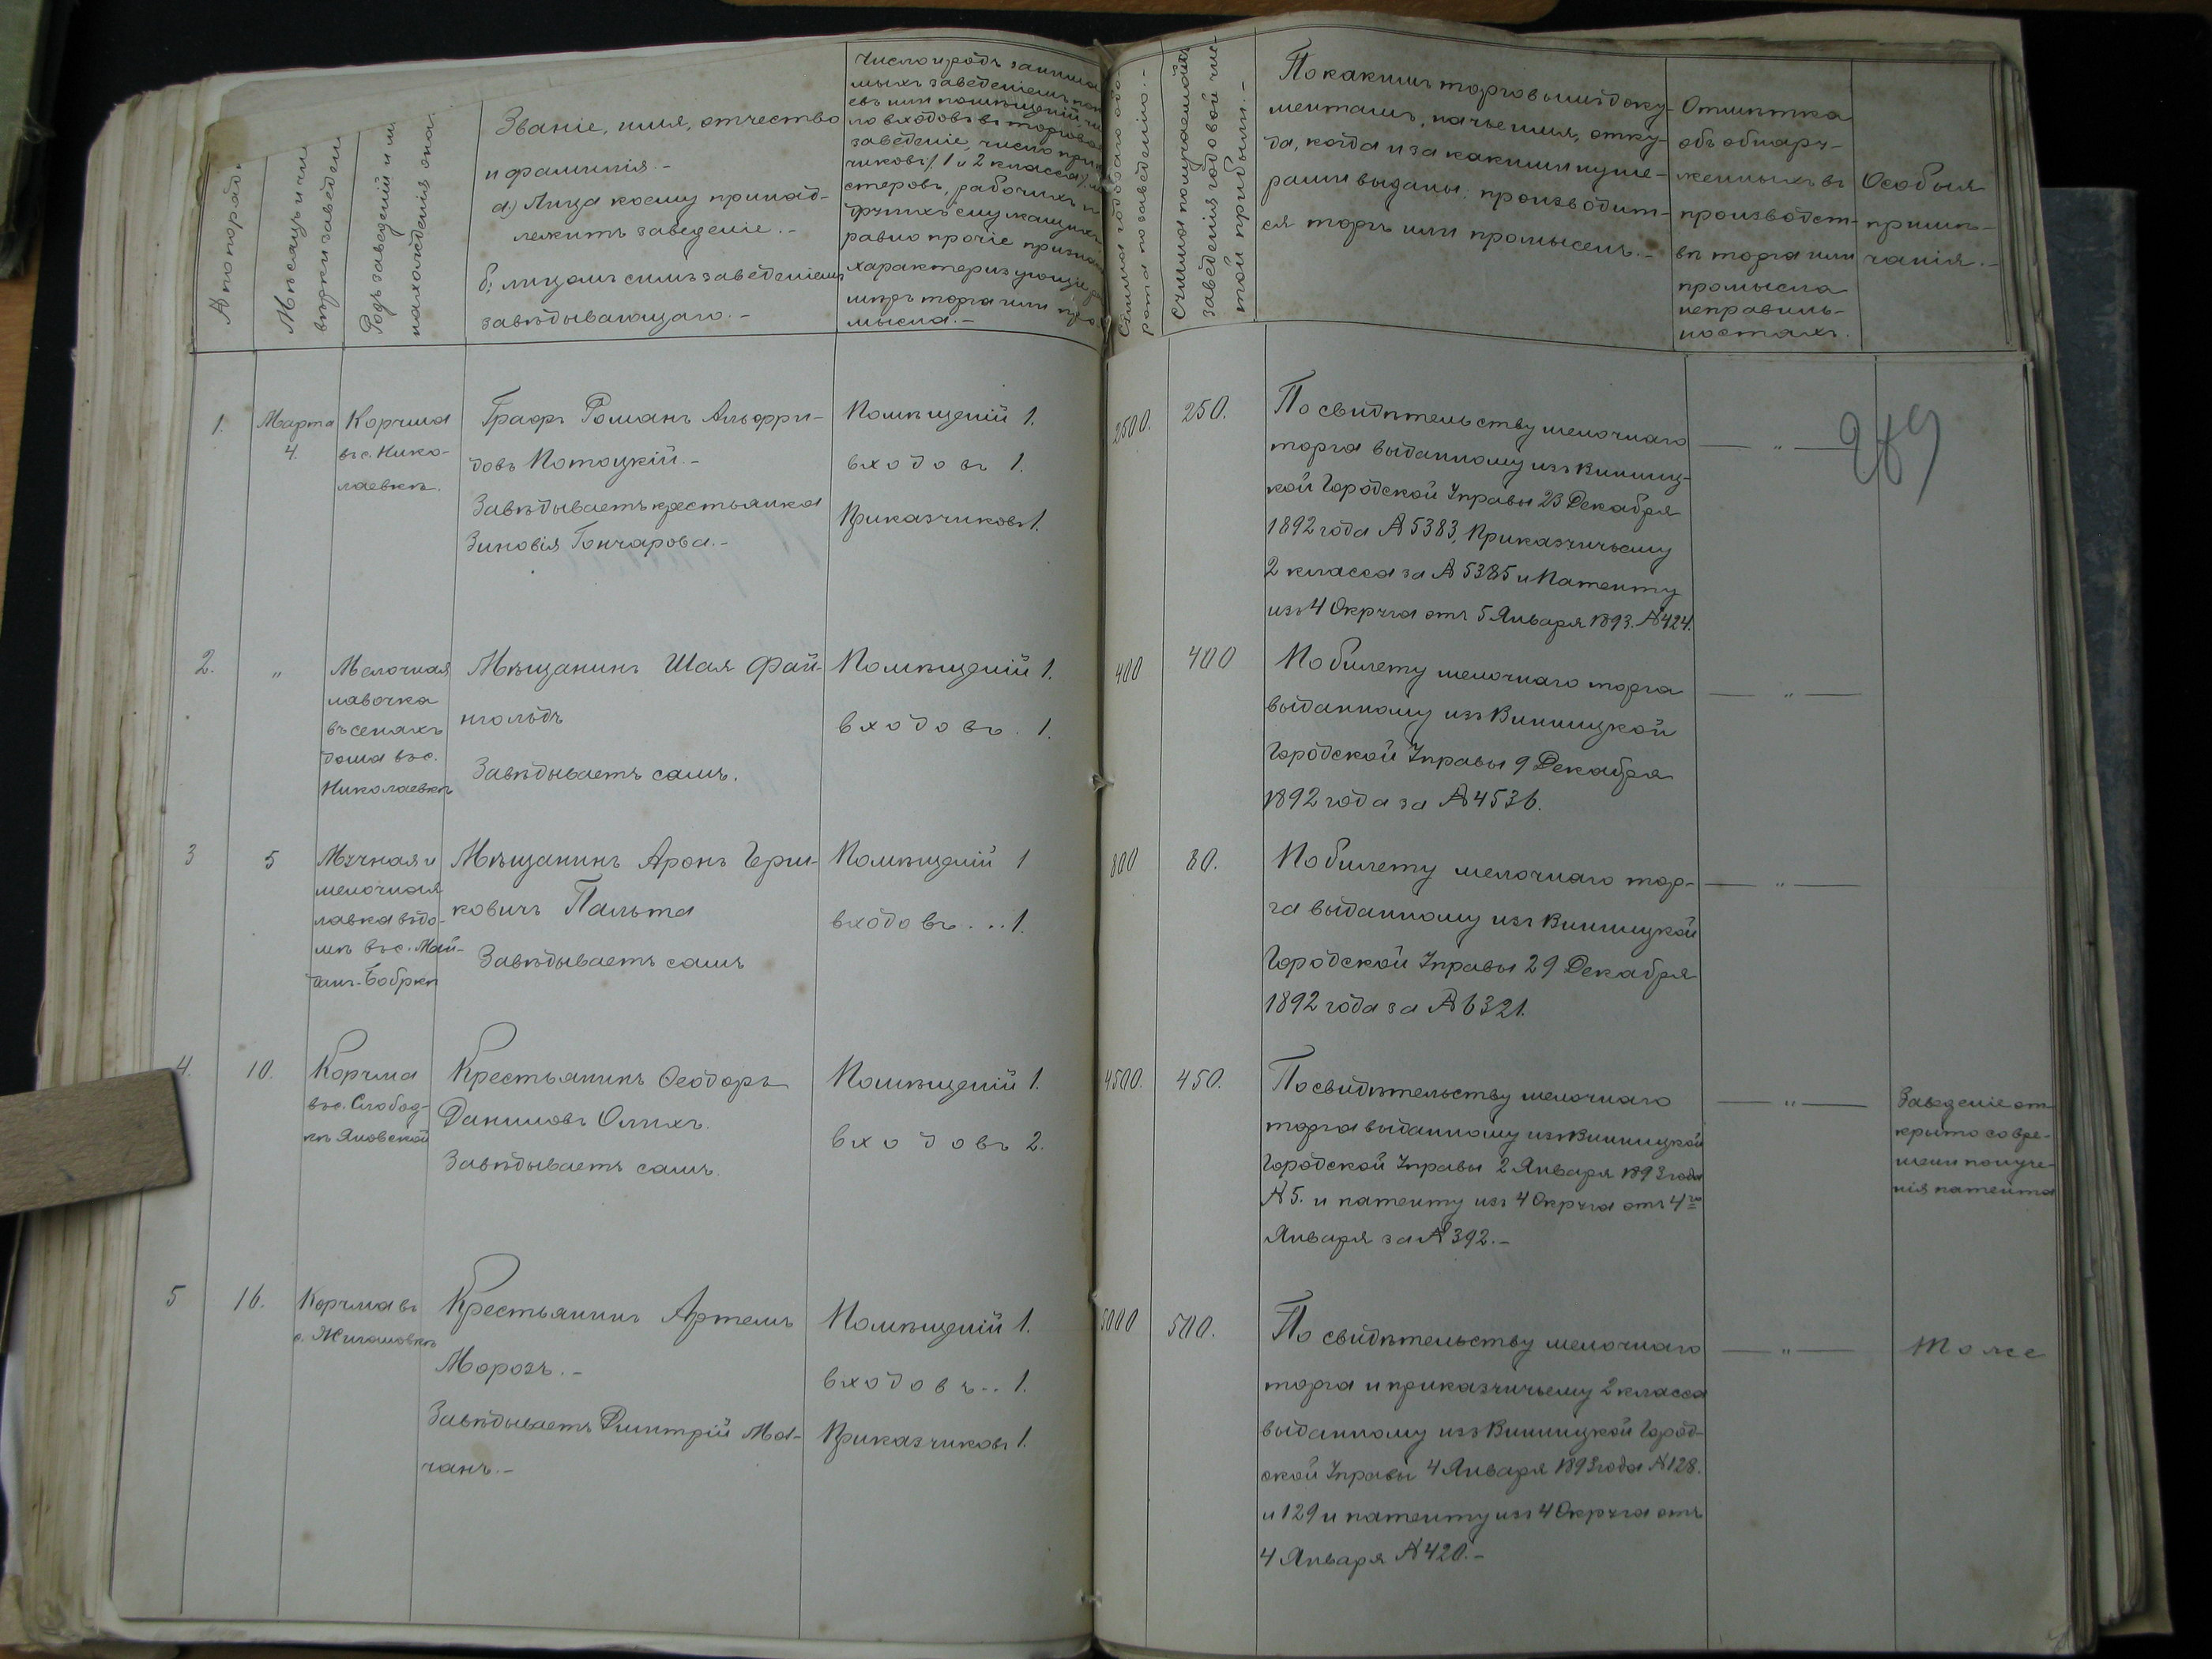 № по порядк
Мѣсяцъ и чи
вѣрки заведен
Родъ заведенiй и м
нахожденiя она.
Званіе, имя, отчество
и фамилія.-
а) Лица коему принад-
лежитъ заведеніе.-
б; лицомъ симъ заведеніемъ
завѣдывающаго.-
Число и родъ занима
мыхъ заведеніемъ по
евъ или помѣщеній чи
ло входовъ въ торгово
заведеніе, число при
чиковъ (1 и 2 класса),
стеровъ, рабочихъ и
другихъ служащихъ
равно прочіе призна
характеризующіе
мѣръ торга или про
мысла.-
Сумма годоваго обо-
рота по заведенію.-
Сумма получаемой
заведенія годовой чис-
той прибыли.-
По какимъ торговымъ доку-
ментамъ, на чье имя, отку-
да, когда и за какими нуме-
рами выданы, производит-
ся торгъ или промыселъ.-
Отмѣтка
объ обнару-
женныхъ въ
производст-
вѣ торга или
промысла
неправиль-
ностахъ.
Особыя
примѣ-
чанія.-
289
1.
Марта
4.
Корчма
въ с. Нико-
лаевкѣ.
Графъ Романъ Альфри-
довъ Потоцкій.-
Завѣдываетъ крестьянка
Зиновія Гончарова.-
Помѣщеній 1.
входовъ 1.
Приказчиковъ 1.
2500.
250.
По свидѣтельству мелочнаго
торга выданному изъ Винниц-
кой Городской Управы 23 Декабря
1892 года № 5383, Приказчичьему
2 класса за № 5385 и Патенту
изъ 4 Округа отъ 5 Января 1893. № 424.
— „ —
2.
„
Мелочная
лавочка
въ сеняхъ
дома въ с.
Николаевкѣ
Мѣщанинъ Шая Фай-
нгольдъ
Завѣдываетъ самъ.
Помѣщеній 1.
входовъ. 1.
400
400
По билету мелочнаго торга
выданному изъ Винницкой
Городской Управы 9 Декабря
1892 года за № 4536.
— „ —
3
5
Мучная и
мелочная
лавка въ до-
мѣ въ с. Май-
данѣ-Бобрик
Мѣщанинъ Аронъ Герш-
ковичъ Пальта
Завѣдываетъ самъ
Помѣщеній 1
входовъ... 1.
800
80.
По билету мелочнаго тор-
га выданному изъ Винницкой
Городской Управы 29 Декабря
1892 года за № 6321.
— „ —
4.
10.
Корчма
въ с. Слобод-
кѣ Яновской
Крестьянинъ Ѳеодоръ
Даниловъ Олихъ.
Завѣдываетъ самъ.
Помѣщеній 1.
входовъ 2.
4500.
450.
По свидѣтельству мелочнаго
торга выданному изъ Винницкой
Городской Управы 2 Января 1893 года
№ 5. и патенту изъ 4 Округа отъ 4го
Января за № 392.-
— „ —
Заведеніе от-
крыто со вре-
мени получе-
нія патента
5
16.
Корчма въ
с. Жигаловкѣ
Крестьянинъ Артемъ
Морозъ.-
Завѣдываетъ Дмитрій Ма-
чанъ.-
Помѣщеній 1.
входовъ.. 1.
Приказчиковъ 1.
5000
500.
По свидѣтельству мелочнаго
торга и приказчичьему 2 класса
выданному изъ Винницкой Город-
ской Управы 4 Января 1893 года № 128.
и 129 и патенту изъ 4 Округа отъ
4 Января № 420.-
— „ —
Тоже